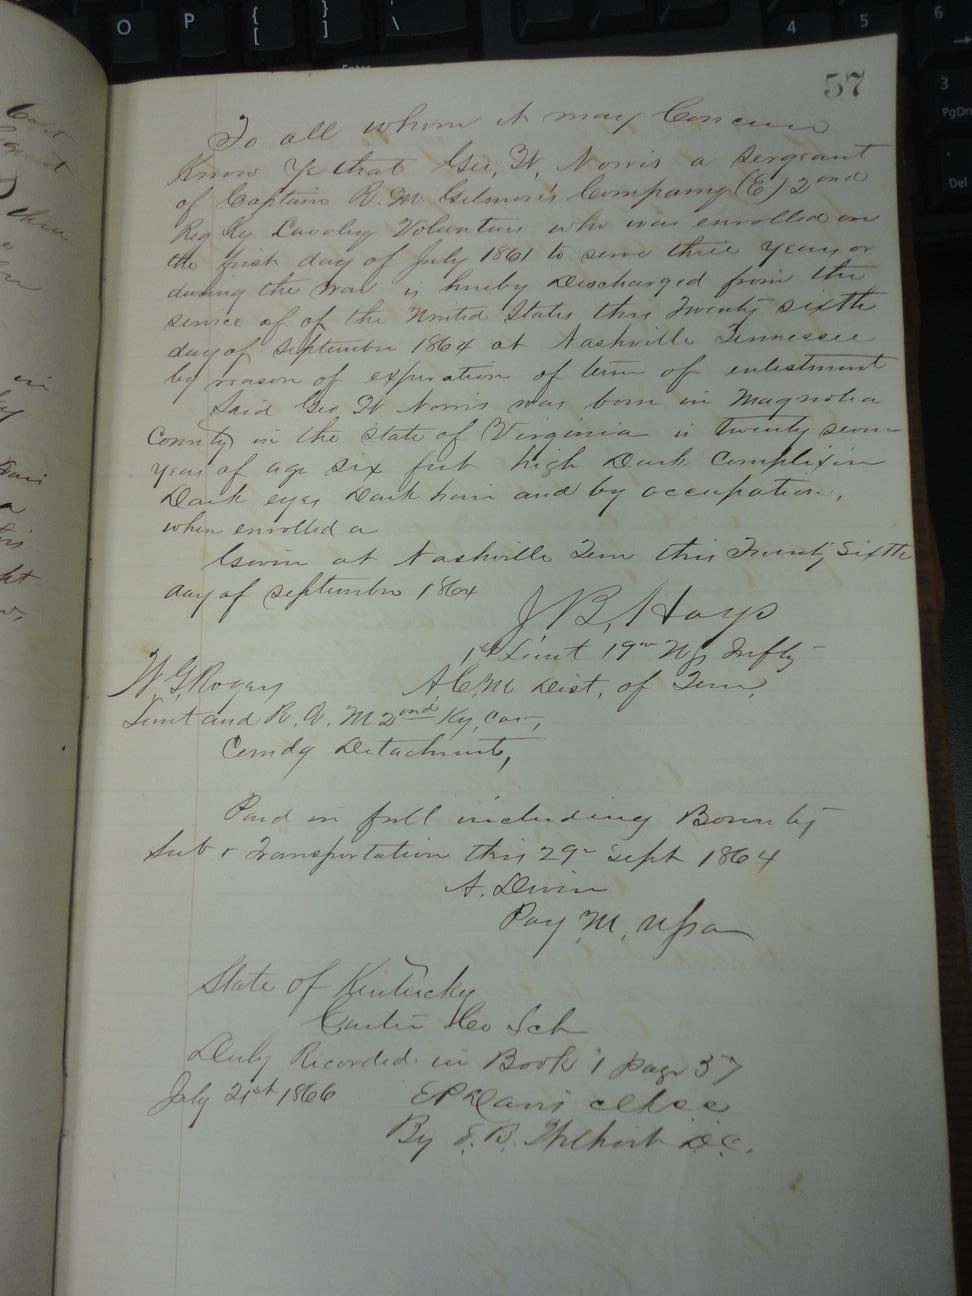 57
To all whom it may Concern
Know Ye that Geo, W, Norris a Sergeant
of Captain R. M. Gilmore's Company (E) 2nd
Reg Ky Cavalry Volunteers who was enrolled on
the first day of July 1861 to serve three years or
during the War is hereby Discharged from the
service of of the United States this Twenty sixth
day of September 1864 at Nashville Tennessee
by reason of expiration of term of enlistment
Said Geo W Norris was born in Magnolia
County in the State of Virginia is twenty seven
years of age six feet high Dark Complexion
Dark eyes Dark hair and by occupation,
when enrolled a
Given at Nashville Tenn this Twenty Sixth
day of September 1864
J B, Hays
1st Lieut 19th Infty
W. G. Rogers A. C. M Dist, of Tenn,
Lieut and R. Q. M 2nd Ky, Cav,
Comdg Detachment,
Paid in full including Bounty
Sub & Transportation this 29th Sept 1864
A. 
Pay, M, USA
State of Kentucky
Carter Co Sct
Duly Recorded in Book 1 page 57
July 21st 1866 E P Davis
By E. B. Wilhoit D.C.
O P { [ } ] | \ 4 5 6
Enter
3
PgDn
.
Del